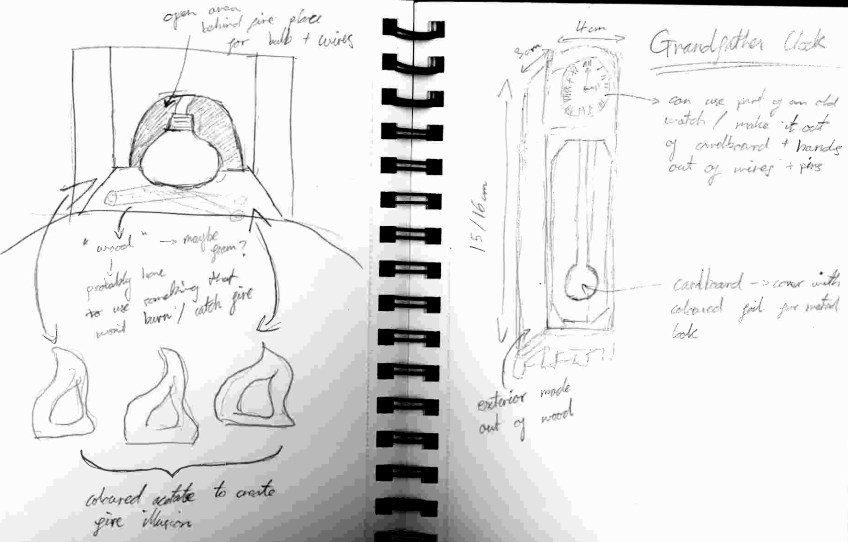 open area
behind fire place
for bulb + wires
"wood" → maybe
foam?
probably have
to use something that
won't burn / catch fire
coloured acetate to create
fire illusion
4cm
3cm
Grandfather Clock
can use part of an old
watch / make it out
of cardboard + hands
out of wires + pins
15/16cm
cardboard → cover with
coloured foil for metal
look
exterior made
out of wood